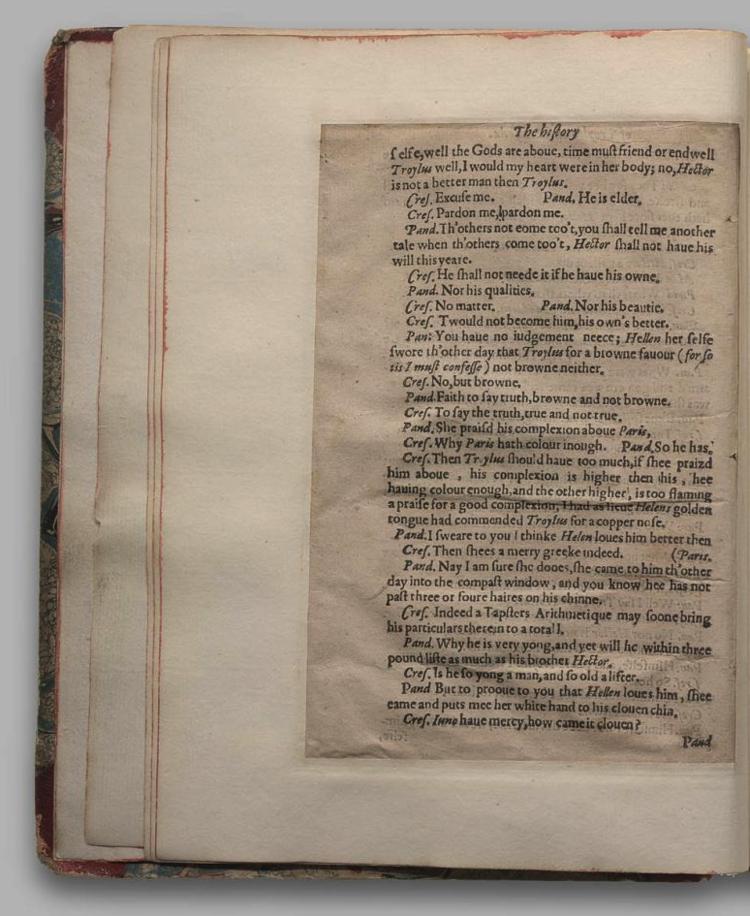 The history
selfe,well the Gods are aboue, time must friend or end well
Troylus well,I would my heart were in her body; no, Hector
is not a better man then Troylus.
Cres. Excuse me. Pand. He is elder.
Cres. Pardon me, pardon me.
Pand. Th'others not eome too't,you shall tell me another
tale when th'others come too't, Hector shall not haue his
will this yeare.
Cres. He shall not neede it if he haue his owne.
Pand. Nor his qualities.
Cres. No matter. Pand. Nor his beautie.
Cres. Twould not become him,his own's better.
Pan: You haue no iudgement neece; Hellen her selfe
swore th'other day that Troylus for a browne fauour (for so
tis I must confesse ) not browne neither.
Cres. No,but browne.
Pand. Faith to say truth,browne and not browne.
Cres. To say the truth,true and not true.
Pand. She praisd his complexion aboue Paris,
Cres. Why Paris hath colour inough. Pand, So he has,
Cres. Then Troylus should haue too much,if shee praizd
him aboue , his complexion is higher then his , hee
hauing colour enough,and the other higher, is too flaming
a praise for a good complexion, I had as lieue Helens golden
tongue had commended Troylus for a copper nose.
Pand. I sweare to you I thinke Helen loues him better then
Cres. Then shees a merry greeke indeed. (Paris.
Pand. Nay I am sure she dooes,she came to him th'other
day into the compast window, and you know hee has not
past three or foure haires on his chinne.
Cres. Indeed a Tapsters Arithmetique may soone bring
his particulars therein to a totall.
Pand. Why he is very yong,and yet will he within three
pound lifte as much as his brother Hector.
Cres. Is he so yong a man,and so old a lifter.
Pand But to prooue to you that Hellen loues him, shee
eame and puts mee her white hand to his clouen chin.
Cres. Iuno haue mercy,how came it clouen?
Pand